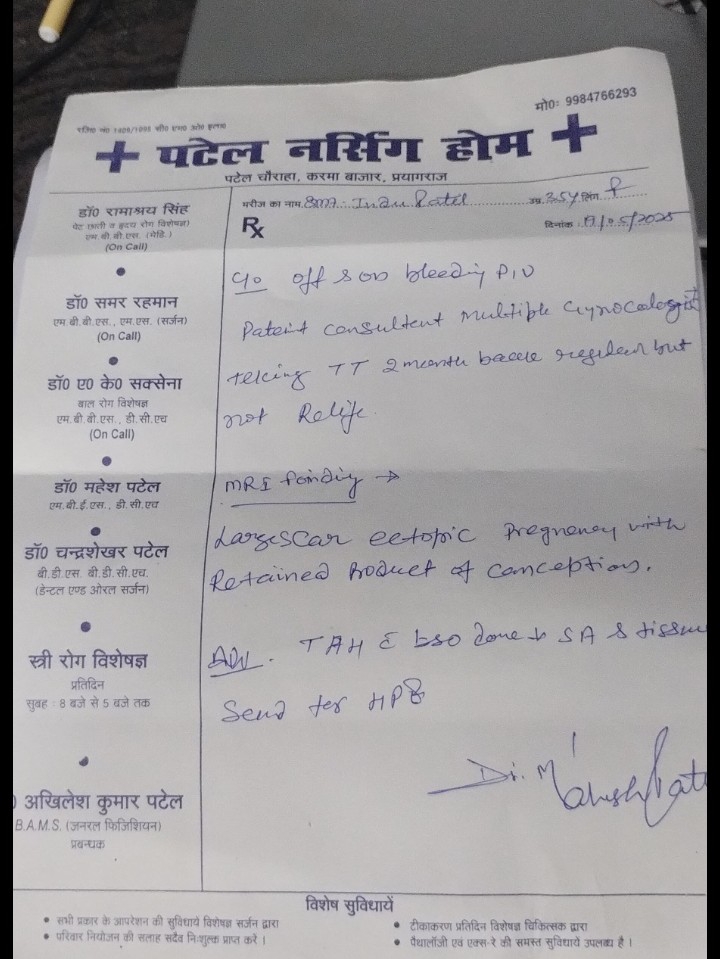 मो0: 9984766293
रजि0 नं0 1408/1998 सी0 एम0 ओ0
+ पटेल नर्सिंग होम +
पटेल चौराहा, करमा बाजार, प्रयागराज
डॉ0 रामाश्रय सिंह
पेट छाती व हृदय रोग विशेषज्ञ
एम.बी.बी.एस. (मेडि.)
(On Call)
डॉ0 समर रहमान
एम.बी.बी.एस., एम.एस. (सर्जन)
(On Call)
डॉ0 ए0 के0 सक्सेना
बाल रोग विशेषज्ञ
एम.बी.बी.एस., डी.सी.एच
(On Call)
डॉ0 महेश पटेल
एम.बी.ई.एस., डी.सी.एच
डॉ0 चन्द्रशेखर पटेल
बी.डी.एस. बी.डी.सी.एच.
(डेन्टल एण्ड ओरल सर्जन)
स्त्री रोग विशेषज्ञ
प्रतिदिन
सुबह : 8 बजे से 5 बजे तक
अखिलेश कुमार पटेल
B.A.M.S. (जनरल फिजिशियन)
प्रबन्धक
मरीज का नाम Smt. Indu Patel उम्र 35Y लिंग F
Rx
दिनांक /05/2025
C/o off & on bleeding P/V
Patient consultent multiple Gynocologist
teking TT 2 month back reguler but
not Relife.
MRI finding →
Large scar ectopic pregnency with
Retained Product of conception.
Adv. TAH c bso done SA & tissue
Send for HPE
Dr. Mahesh Patel
विशेष सुविधायें
• सभी प्रकार के आपरेशन की सुविधायें विशेषज्ञ सर्जन द्वारा
• परिवार नियोजन की सलाह सदैव निःशुल्क प्राप्त करें ।
• टीकाकरण प्रतिदिन विशेषज्ञ चिकित्सक द्वारा
• पैथालॉजी एवं एक्स-रे की समस्त सुविधायें उपलब्ध है ।